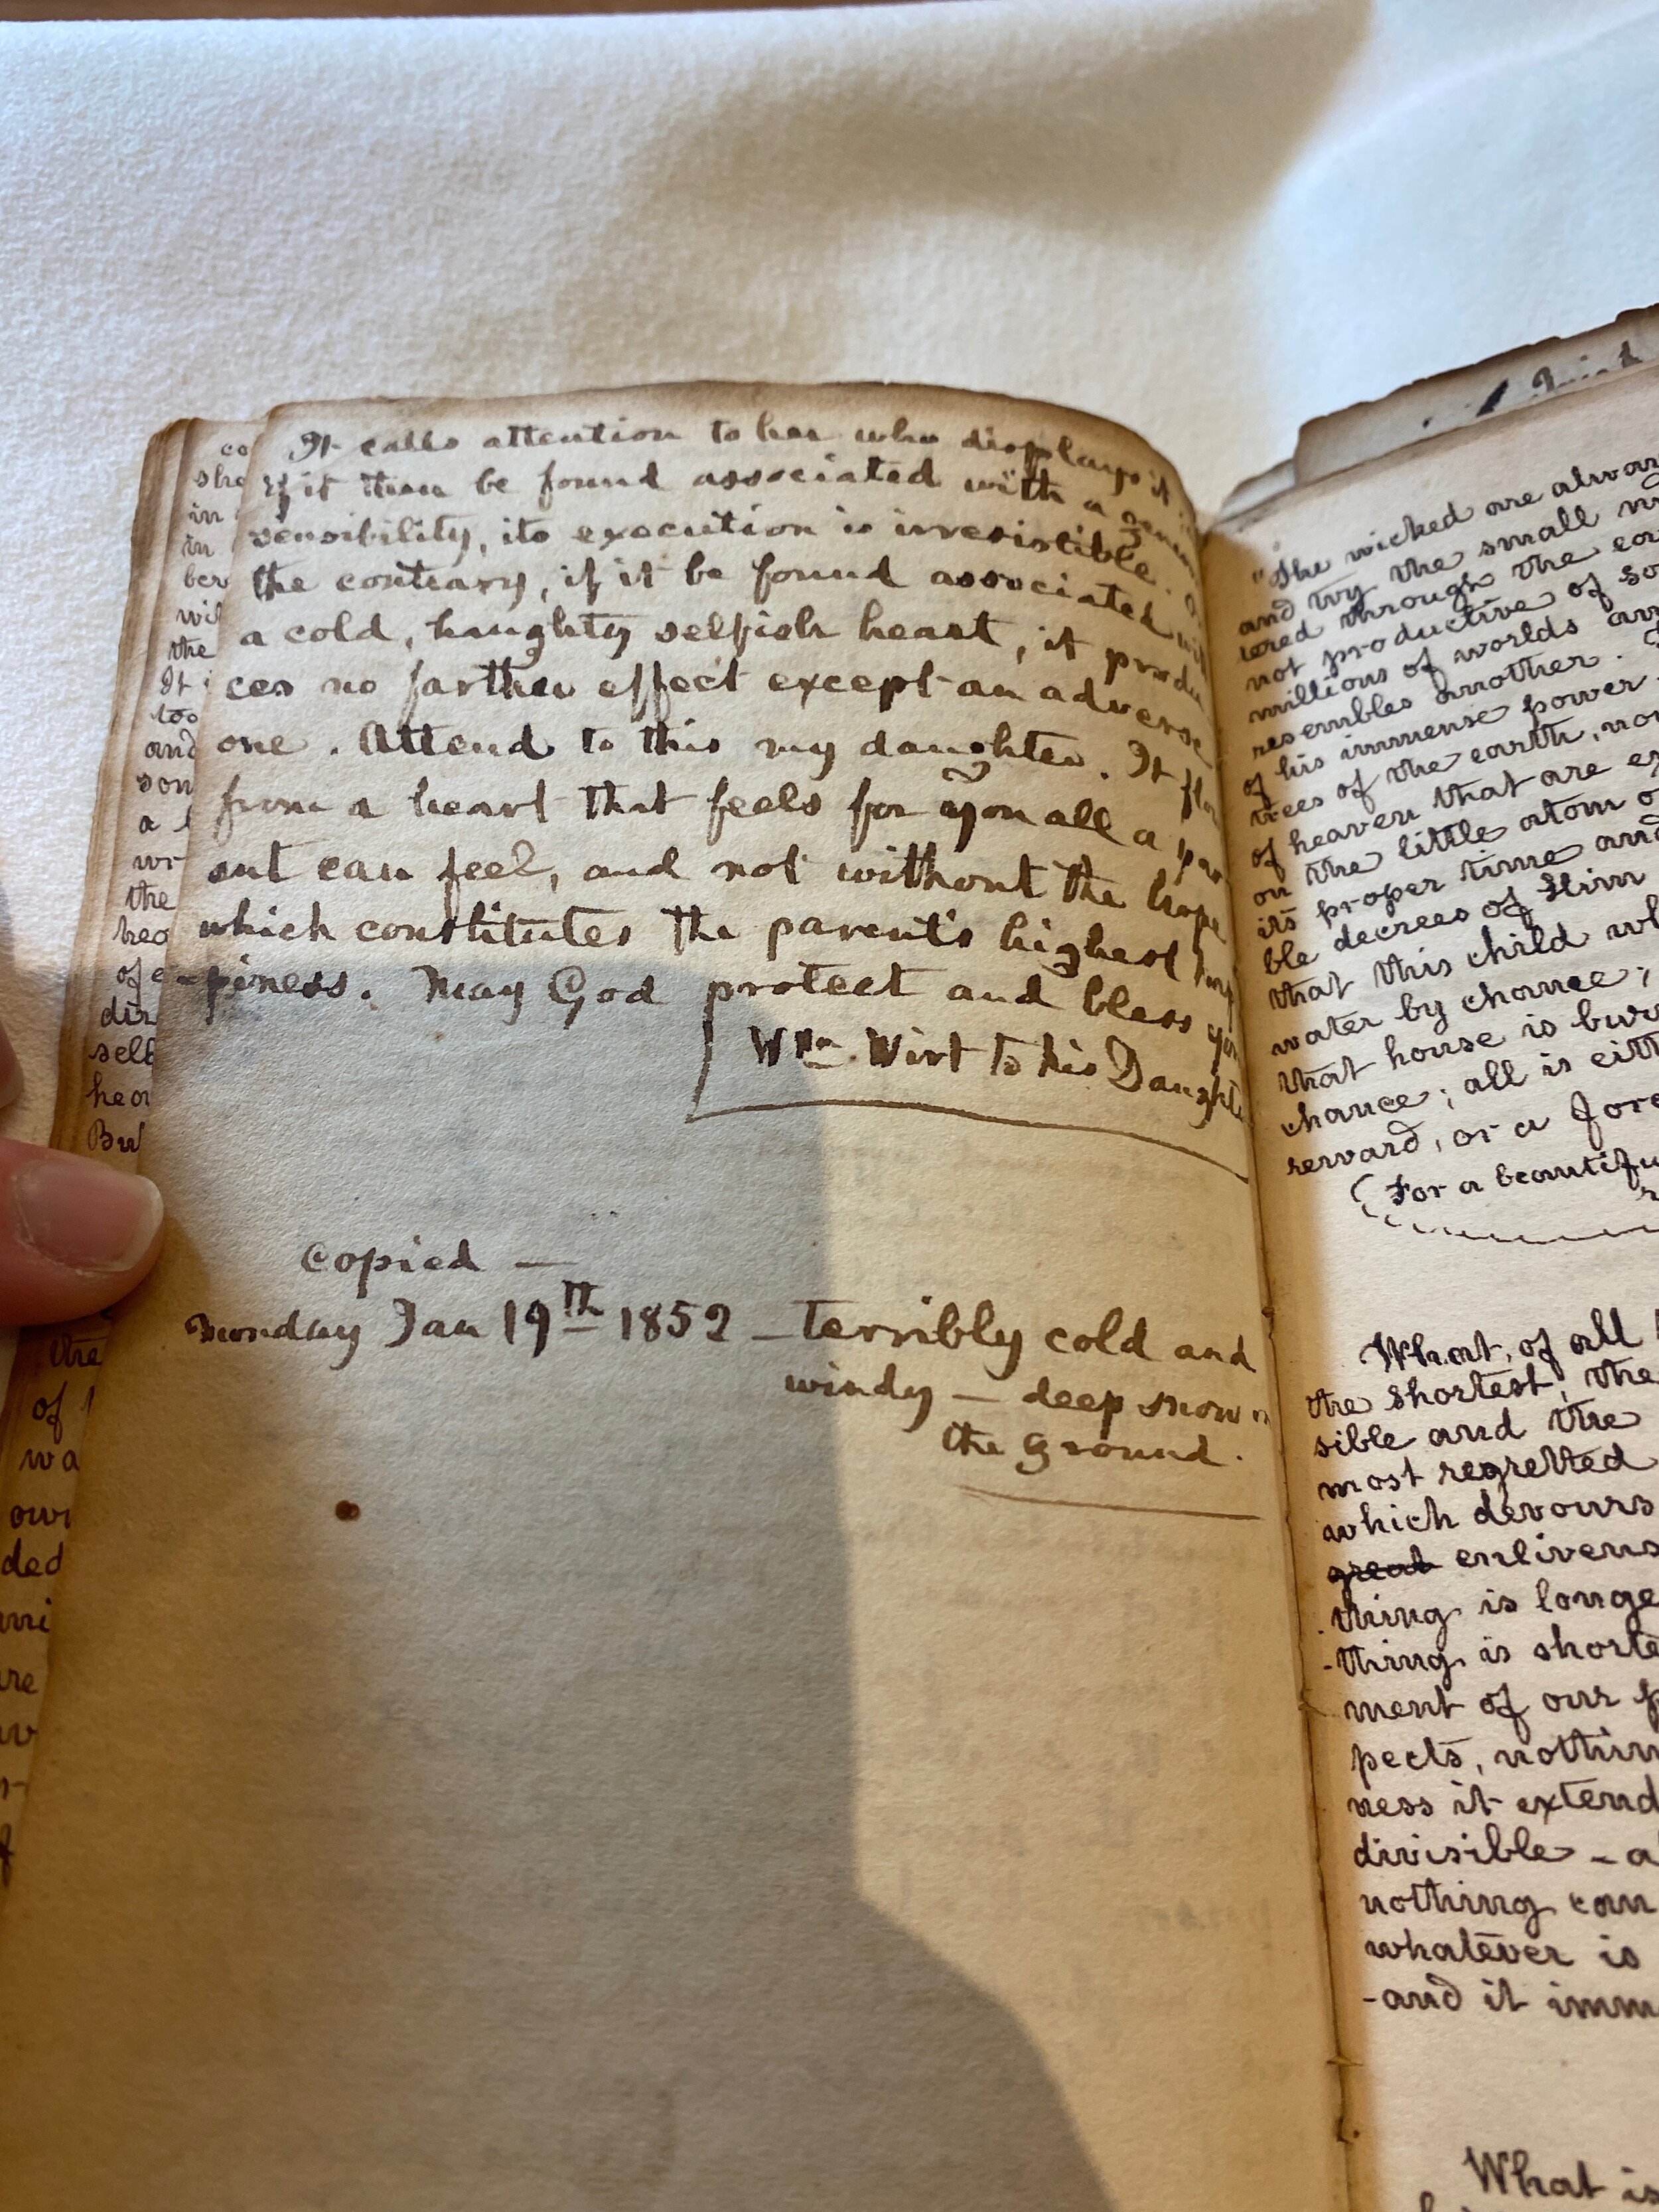 It calls attention to her who displays it
If it then be found associated with a
sensibility, its execution is irresistible.
the contrary, if it be found associated
a cold, haughty selfish heart, it produ
ces no farther effect except an adverse
one. Attend to this my daughter. It flo
from a heart that feels for you all a pa
ent can feel, and not without the hope
which constitutes the parent's highest hap
-piness. May God protect and bless you
Wm. Wirt to his Daught
copied —
Monday Jan 19th 1852 — Terribly cold and
windy — deep snow
the ground.
co
sho
in
in
ber
wil
the
It i
too
and
son
a
wr
the
hea
of e
dis
self
hea
But
the
of
wa
own
ded
"The wicked are alway
and try the small
tered through the ear
not productive of so
millions of worlds
resembles another.
of his immense power.
trees of the earth, nor
of heaven that are ex
on the little atom o
its proper time and
ble decrees of Him
that this child wh
water by chance;
that house is bur
chance; all is eith
reward, or a fore
(For a beautifu
What, of all
the shortest, the
sible and the
most regretted
which devours
great enlivens
thing is longe
-thing is shorte
ment of our p
pects, nothin
ness it extend
divisible - a
nothing can
whatever is
-and it imm
What is